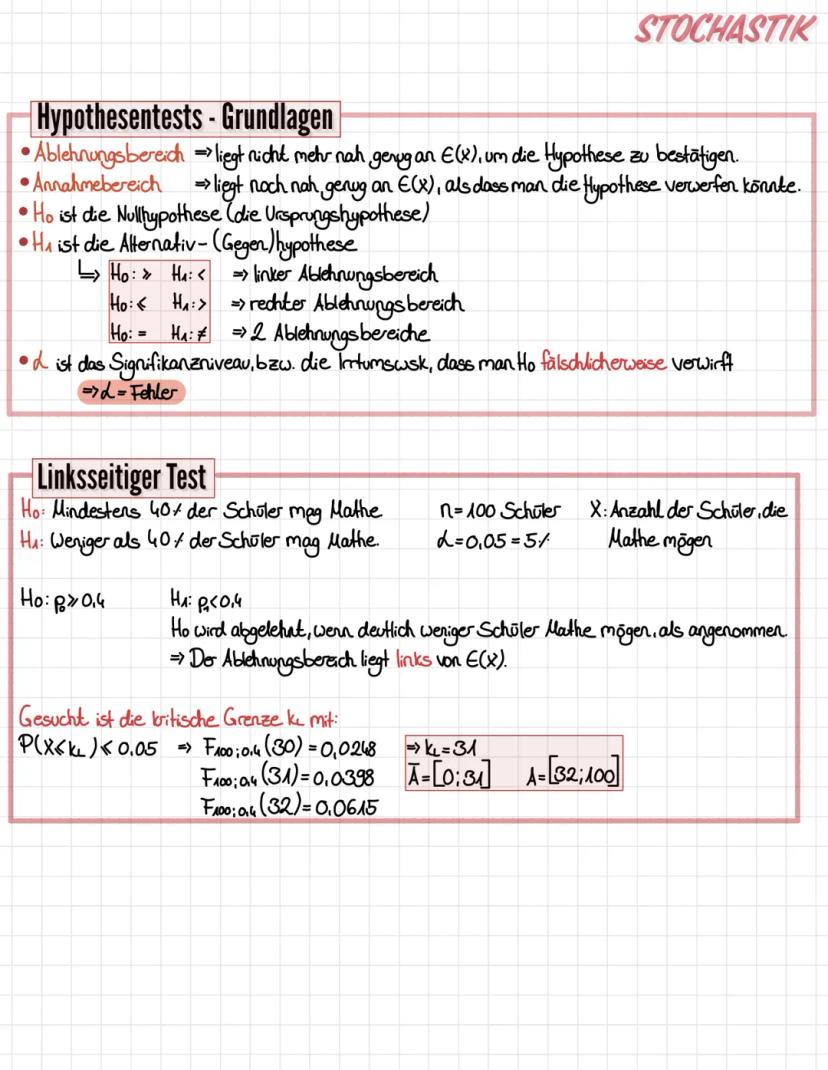 STOCHASTIK
Hypothesentests - Grundlagen
• Ablehnungsbereich ⇒ liegt nicht mehr nah genug an E(X), um die Hypothese zu bestätigen.
• Annahmebereich ⇒ liegt noch nah genug an E(X), als dass man die Hypothese verwerfen könnte.
• H₀ ist die Nullhypothese (die Ursprungshypothese)
• H₁ ist die Alternativ-(Gegen)hypothese
↳ H₀: ≥ H₁: < ⇒ linker Ablehnungsbereich
H₀: ≤ H₁: > ⇒ rechter Ablehnungsbereich
H₀: = H₁: ≠ ⇒ 2 Ablehnungsbereiche
• α ist das Signifikanzniveau, bzw. die Irrtumswsk, dass man H₀ fälschlicherweise verwirft
⇒ α = Fehler
Linksseitiger Test
H₀: Mindestens 40% der Schüler mag Mathe n = 100 Schüler X: Anzahl der Schüler, die
H₁: Weniger als 40% der Schüler mag Mathe. α = 0,05 = 5% Mathe mögen
H₀: p₀ ≥ 0,4 H₁: p₁ < 0,4
H₀ wird abgelehnt, wenn deutlich weniger Schüler Mathe mögen, als angenommen.
⇒ Der Ablehnungsbereich liegt links von E(X).
Gesucht ist die kritische Grenze k_L mit:
P(X ≤ k_L) ≤ 0.05 ⇒ F₁₀₀;₀,₄ (30) = 0,0248 ⇒ k_L = 31
F₁₀₀;₀,₄ (31) = 0,0398 Ā = [0; 31] A = [32; 100]
F₁₀₀;₀,₄ (32) = 0,0615